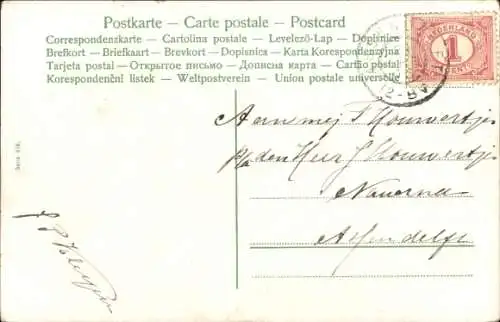 Postkarte – Carte postale – Postcard
Correspondenzkarte – Cartolina postale – Levelező-Lap – Dopisnice
Brefkort – Briefkaart – Brevkort – Dopisnica – Karta Korespondenzyjna
Tarjeta postal – Открытое письмо – Дописна карта – Cartão postal
Korespondenční listek – Weltpostverein – Union postale universelle
NEDERLAND
1
CENT
12-8V
Aan mej F Houwertjes
p/a den Heer J Houwertjes
Nauerna
Assendelft
Serie 419.